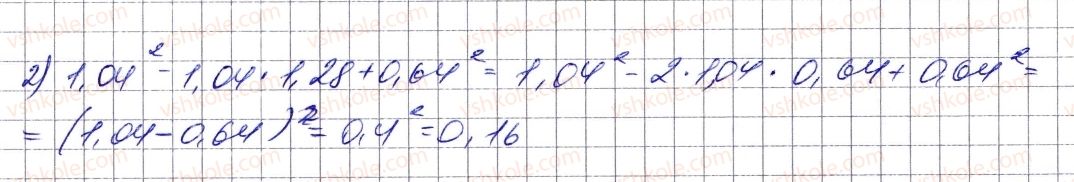 2) 1,04² - 1,04 · 1,28 + 0,64² = 1,04² - 2 · 1,04 · 0,64 + 0,64² =
= (1,04 - 0,64)² = 0,4² = 0,16